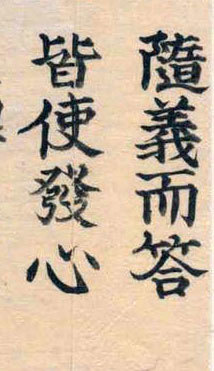 隨義而答
皆使發心